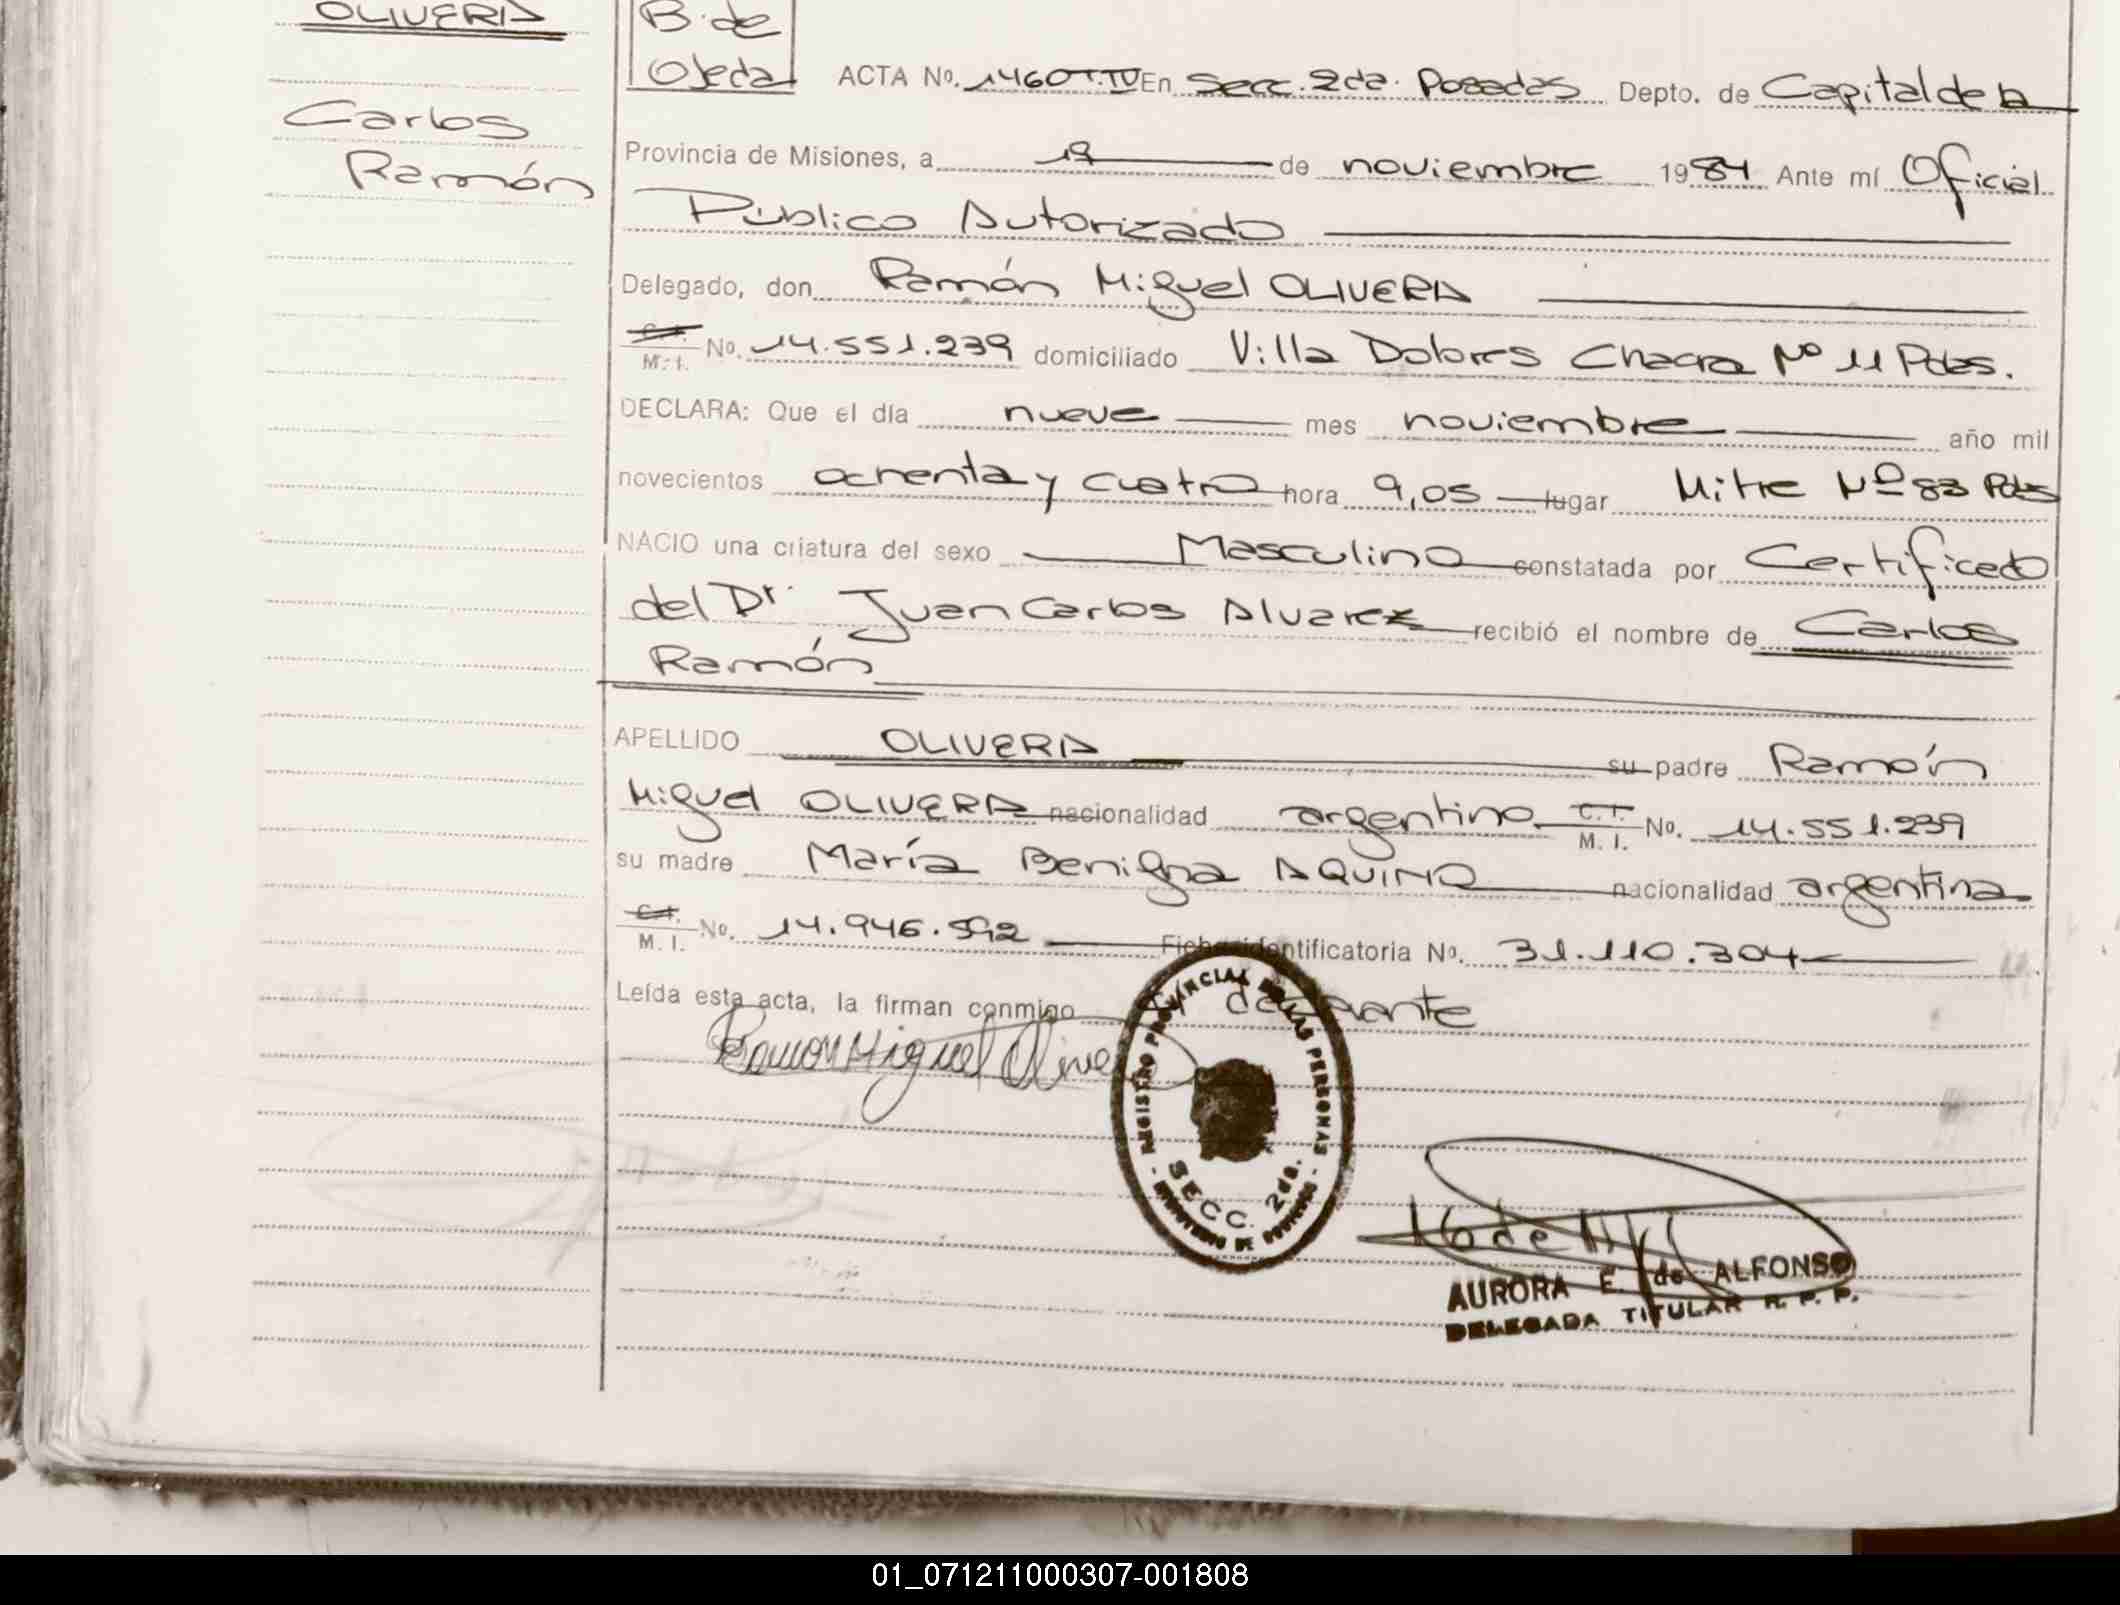 OLIVERA
Carlos
Ramón
B. de
Ojeda
ACTA No. 1460 T. IV En Secc. 2da. Posadas Depto. de Capital de la
Provincia de Misiones, a 19 de noviembre 1984 Ante mí Oficial
Público Autorizado
Delegado, don Ramón Miguel OLIVERA
C.I. M. I. No. 14.551.239 domiciliado Villa Dolores Chacra Nº 11 Pdas.
DECLARA: Que el día nueve mes noviembre año mil
novecientos ochenta y cuatro hora 9,05 lugar Mitre Nº 83 Pdas
NACIO una criatura del sexo Masculino constatada por Certificado
del Dr. Juan Carlos Alvarez recibió el nombre de Carlos
Ramón
APELLIDO OLIVERA su padre Ramón
Miguel OLIVERA nacionalidad argentino C.I. M. I. No. 14.551.239
su madre María Benigna AQUINO nacionalidad argentina
C.I. M. I. No. 14.946.592 Ficha identificatoria No. 31.110.304
Leída esta acta, la firman conmigo el declarante
Ramon Miguel Olivera
REGISTRO PROVINCIAL DE LAS PERSONAS
SECC. 2da.
MINISTERIO DE GOBIERNO
AURORA E. de ALFONSO
DELEGADA TITULAR R. P. P.
01_071211000307-001808